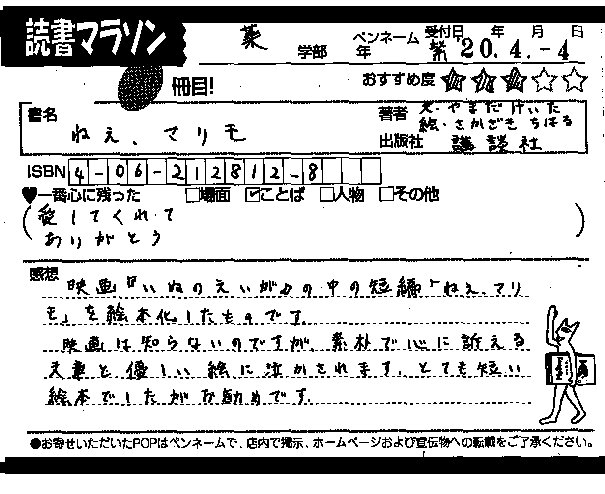 読書マラソン
薬 学部 年 ペンネーム 紫
受付日 年 月 日
20.4.-4
冊目!
おすすめ度 ★★★☆☆
書名 ねえ、マリモ
著者 文・やまだけいた
絵・さかざきちはる
出版社 講談社
ISBN 4-06-212812-8
♥一番心に残った □場面 ☑ことば □人物 □その他
(愛してくれて
ありがとう)
感想
映画『いぬのえいが』の中の短編「ねえ、マリ
モ」を絵本化したものです。
映画は知らないのですが、素朴で心に訴える
文章と優しい絵に泣かされます。とても短い
絵本でしたがお勧めです。
●お寄せいただいたPOPはペンネームで、店内で掲示、ホームページおよび宣伝物への転載をご了承ください。